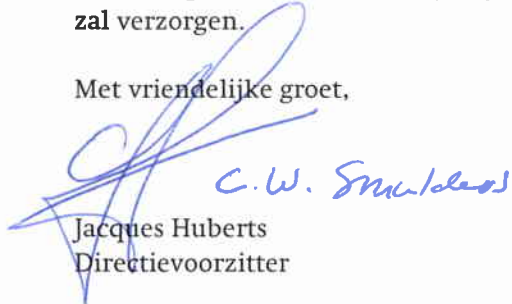 zal verzorgen.
Met vriendelijke groet,
C.W. Smulders
Jacques Huberts
Directievoorzitter